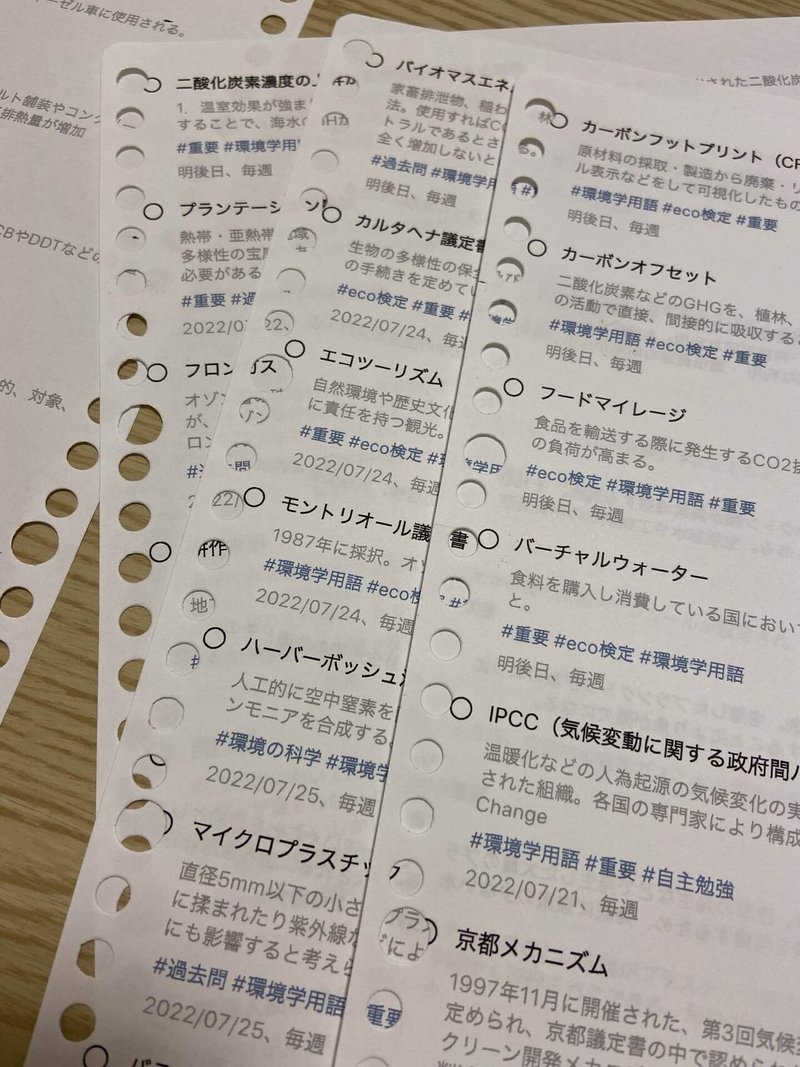 ーゼル車に使用される。
ルト舗装やコンク
排熱量が増加
CBやDDTなどの
的、対象、
二酸化炭素濃度の上
1. 温室効果が強ま
することで、海水の
#重要 #環境学用
明後日、毎週
プランテーション
熱帯・亜熱帯
多様性の宝
必要がある
#重要 #過
2022/07
フロンガス
オゾ
が、
ロン
バイオマスエネ
家畜排泄物、稲わ
法。使用すればC
トラルであるとさ
全く増加しないと
#過去問 #環境学用
明後日、毎週
カルタヘナ議定書
生物の多様性の保全
の手続きを定めてい
#eco検定 #重要 #
2022/07/24、毎週
エコツーリズム
自然環境や歴史文化
に責任を持つ観光。
#重要 #eco検定 #環
2022/07/24、毎週
モントリオール議
1987年に採択。オゾ
#環境学用語 #eco検
2022/07/24、毎週
ハーバーボッシュ法
人工的に空中窒素を
ンモニアを合成する。
#環境の科学 #環境学
2022/07/25、毎週
マイクロプラスチック
直径5mm以下の小さ
に揉まれたり紫外線
にも影響すると考えら
#過去問 #環境学用語
2022/07/25、毎週
された二酸化炭
カーボンフットプリント（CF
原材料の採取・製造から廃棄・リ
ル表示などをして可視化したもの
#環境学用語 #eco検定 #重要
明後日、毎週
カーボンオフセット
二酸化炭素などのGHGを、植林、
の活動で直接、間接的に吸収すると
#環境学用語 #eco検定 #重要
明後日、毎週
フードマイレージ
食品を輸送する際に発生するCO2排
の負荷が高まる。
#eco検定 #環境学用語 #重要
明後日、毎週
書
バーチャルウォーター
食料を購入し消費している国におい
と。
#重要 #eco検定 #環境学用語
明後日、毎週
IPCC（気候変動に関する政府間パ
温暖化などの人為起源の気候変化の実
された組織。各国の専門家により構成
Change
#環境学用語 #重要 #自主勉強
2022/07/21、毎週
京都メカニズム
1997年11月に開催された、第3回気候変
定められ、京都議定書の中で認められ
クリーン開発メカ